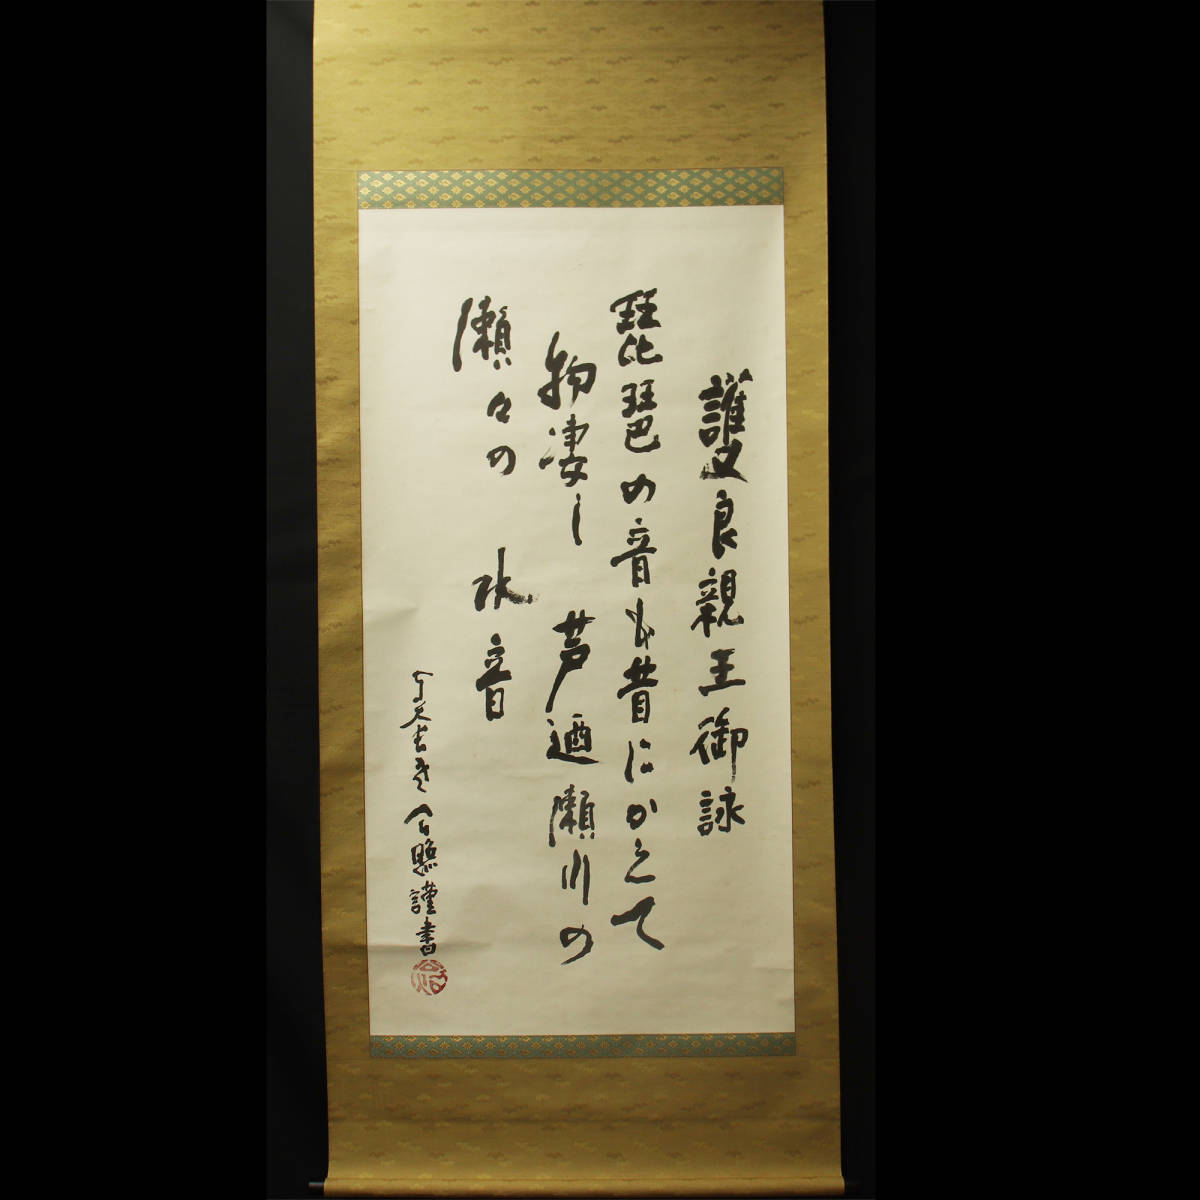 護良親王御詠
琵琶の音も昔にかえて
物凄し 芦廼瀬川の
瀬々の 水音
公照謹書